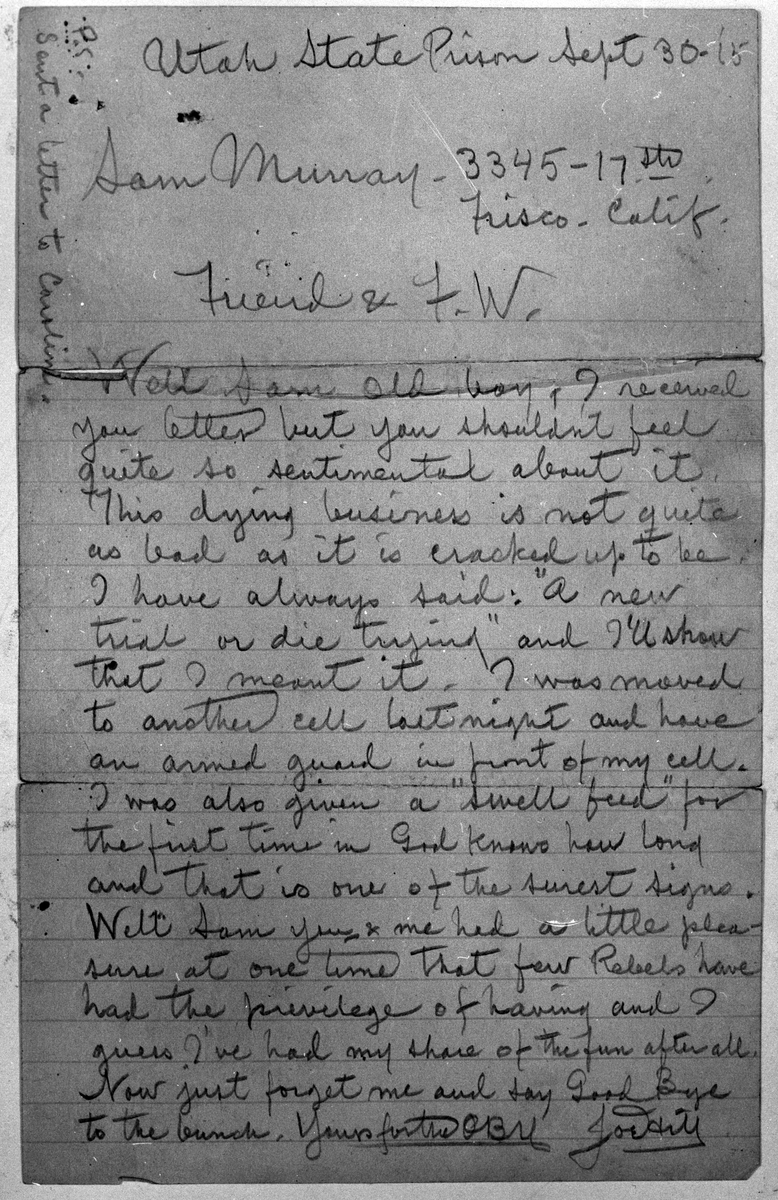 Utah State Prison Sept 30-15
Sam Murray - 3345-17th
Frisco. Calif.
Friend & F. W.
Well Sam Old boy, I received
you letter but you shouldn't feel
quite so sentimental about it.
This dying business is not quite
as bad as it is cracked up to be.
I have always said: "A new
trial or die trying" and I'll show
that I meant it. I was moved
to another cell last night and have
an armed guard in front of my cell.
I was also given a "swell feed" for
the first time in God knows how long
and that is one of the surest signs.
Well Sam you & me had a little plea-
sure at one time that few Rebels have
had the privilege of having and I
guess I've had my share of the fun after all.
Now just forget me and say Good Bye
to the bunch. Yours for the OBU Joe Hill
P.S.
Sent a letter to Caroline.